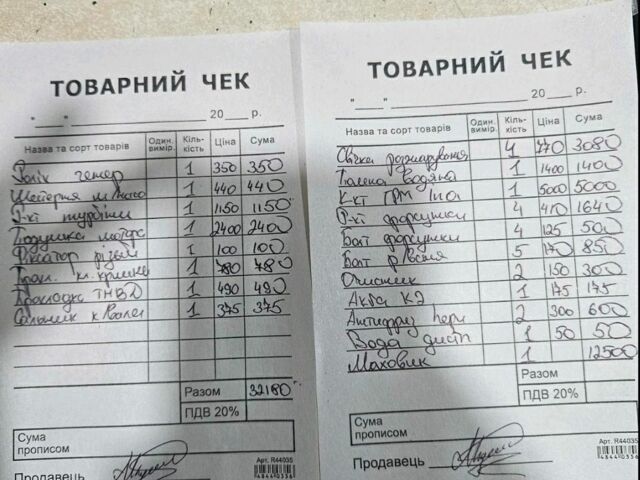 ТОВАРНИЙ ЧЕК
"___" ________ 20___ р.
Назва та сорт товарів Один. вимір. Кіль-кість Ціна Сума
Ролік генер 1 350 350
Шетерня 1 440 440
Р-кт турбіни 1 1150 1150
Подушка мотора 1 2400 2400
Фіксатор різьби 1 100 100
Прокл. кл. кришки 1 780 780
Прокладка ТНВД 1 490 490
Сальник к/вала 1 375 375
Разом 32180
ПДВ 20%
Сума прописом
Продавець
Арт. R44035
4844010336
ТОВАРНИЙ ЧЕК
"___" ________ 20___ р.
Назва та сорт товарів Один. вимір. Кіль-кість Ціна Сума
Свічка розжарування 4 770 3080
Помпа водяна 1 1400 1400
К-кт ГРМ Ina 1 5000 5000
Р-кт форсунки 4 410 1640
Болт форсунки 4 125 500
Болт 5 170 850
Очисник 2 150 300
1 175 175
Антифриз 2 300 600
Вода дист 1 50 50
Маховик 1 12500
Разом
ПДВ 20%
Сума прописом
Продавець
Арт. R44035
4844010336